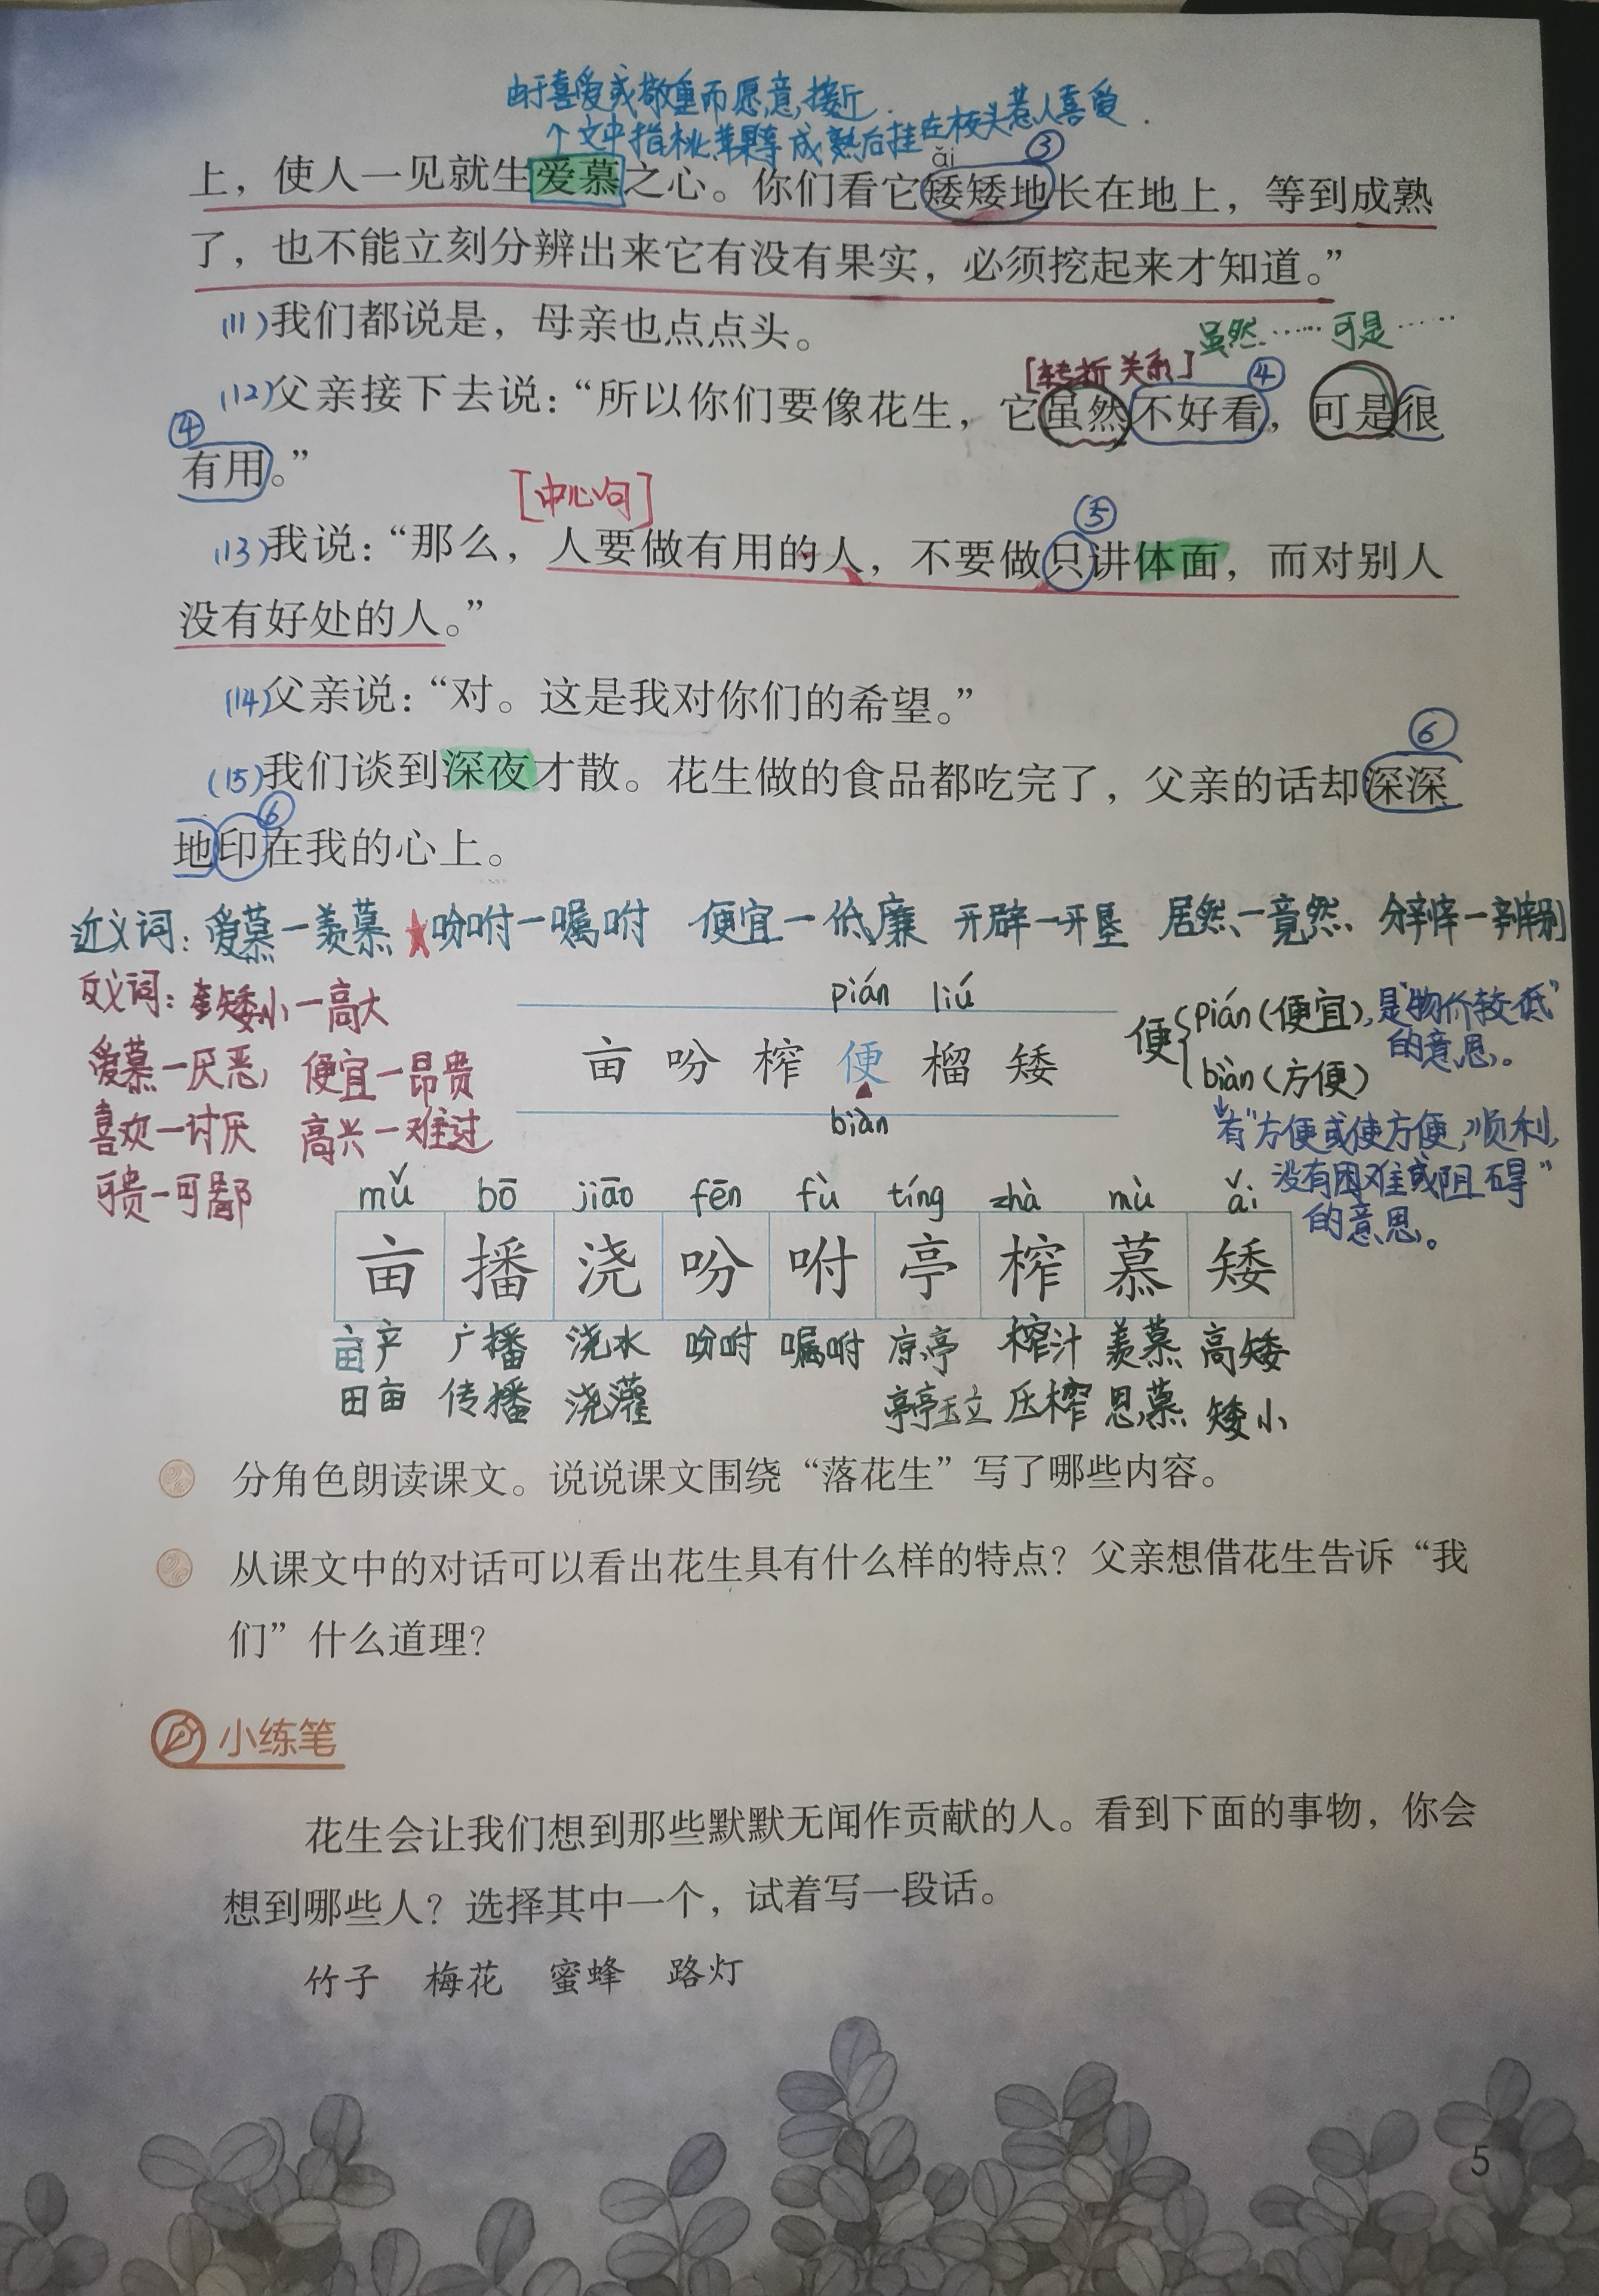 由于喜爱或敬重而愿意接近.
个文中指桃、苹果等成熟后挂在枝头惹人喜爱.
ǎi ③
上，使人一见就生爱慕之心。你们看它矮矮地长在地上，等到成熟
了，也不能立刻分辨出来它有没有果实，必须挖起来才知道。”
(11)我们都说是，母亲也点点头。
虽然……可是……
[转折关系] ④
(12)父亲接下去说：“所以你们要像花生，它虽然不好看，可是很
④
有用。”
[中心句] ⑤
(13)我说：“那么，人要做有用的人，不要做只讲体面，而对别人
没有好处的人。”
(14)父亲说：“对。这是我对你们的希望。”
⑥
(15)我们谈到深夜才散。花生做的食品都吃完了，父亲的话却深深
⑥
地印在我的心上。
近义词：爱慕—羡慕 ★吩咐—嘱咐 便宜—低廉 开辟—开垦 居然—竟然 分辨—辨别
反义词：矮小—高大
爱慕—厌恶 便宜—昂贵
喜欢—讨厌 高兴—难过
可贵—可鄙
pián liú
亩 吩 榨 便 榴 矮
biàn
便{pián(便宜),是“物价较低”
的意思。
biàn(方便)
有“方便或使方便,顺利,
没有困难或阻碍”
的意思。
mǔ bō jiāo fēn fù tíng zhà mù ǎi
亩 播 浇 吩 咐 亭 榨 慕 矮
亩产 广播 浇水 吩咐 嘱咐 凉亭 榨汁 羡慕 高矮
田亩 传播 浇灌 亭亭玉立 压榨 思慕 矮小
分角色朗读课文。说说课文围绕“落花生”写了哪些内容。
从课文中的对话可以看出花生具有什么样的特点？父亲想借花生告诉“我
们”什么道理？
小练笔
花生会让我们想到那些默默无闻作贡献的人。看到下面的事物，你会
想到哪些人？选择其中一个，试着写一段话。
竹子 梅花 蜜蜂 路灯
5